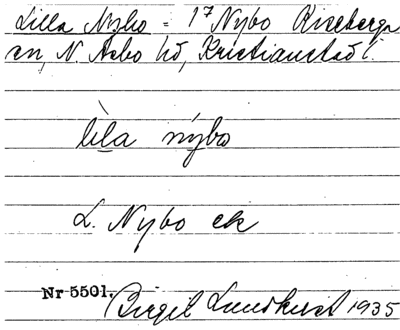 Lilla Nybo = 1⁷ Nybo Riseberga
sn, N. Åsbo hd, Kristianstads l.
lìla nýbo
L. Nybo ek
Nr 5501. Birgit Lundkvist 1935